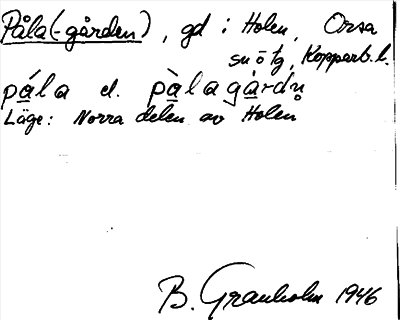 Påla(-gården), gd i Holen, Orsa
sn o tg, Kopparb. l.
pála el. pàlagàrdn̥
Läge: Norra delen av Holen
B. Granholm 1946